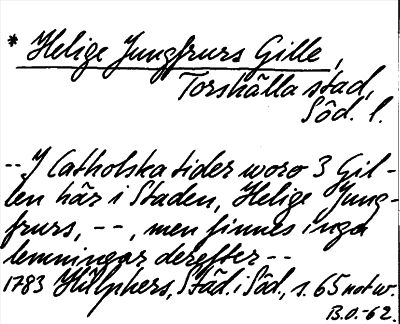 * Helige Jungfrurs Gille,
Torshälla stad,
Söd. l.
--I Catholska tider woro 3 Gil-
len här i Staden, Helige Jung-
frurs, --, men finnes inga
lemningar derefter--
1783 Hülphers, Städ. i Söd., s. 65 not w.
B.O.-62.